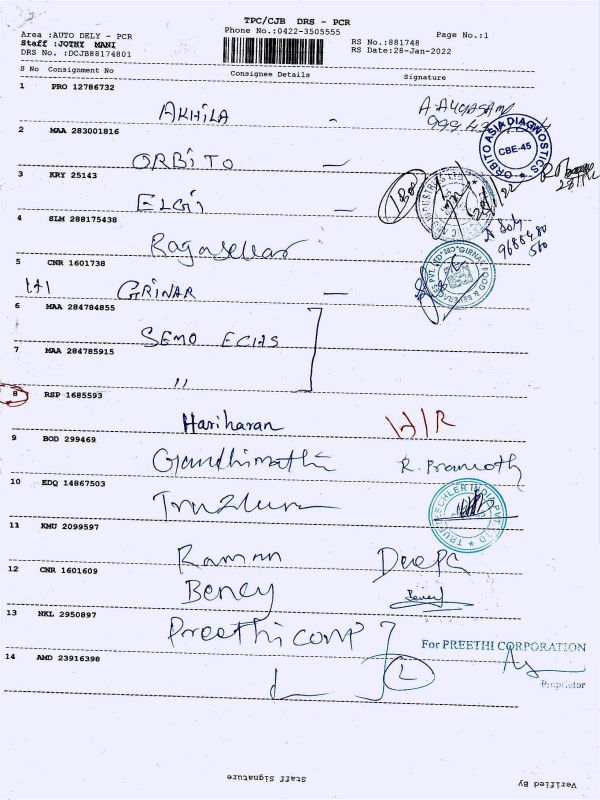 TPC/CJB DRS - PCR
Area :AUTO DELY - PCR
Phone No.:0422-3505555
Page No.:1
Staff :JOTHY MANI
RS No.:881748
DRS No. :DCJB88174801
RS Date:28-Jan-2022
S No Consignment No Consignee Details Signature
1 PRO 12786732
AKHILA -
2 MAA 283001816
ORBITO —
ORBITO ASIA DIAGNOSTICS
CBE-45
3 KRY 25143
ELGi —
4 SLM 288175438
Ragasekar
5 CNR 1601738
GRINAR —
6 MAA 284784855
SEMO ECHS
7 MAA 284785915
"
8 RSP 1685593
Hariharan H/R
9 BOD 299469
Gandhimathi R. Pramoth
10 EDQ 14867503
11 KMU 2099597
Raman Deepa
12 CNR 1601609
Bency Bency
13 NKL 2950897
Preethi corp
For PREETHI CORPORATION
Proprietor
14 AMD 23916398
L
Staff Signature
Verified By